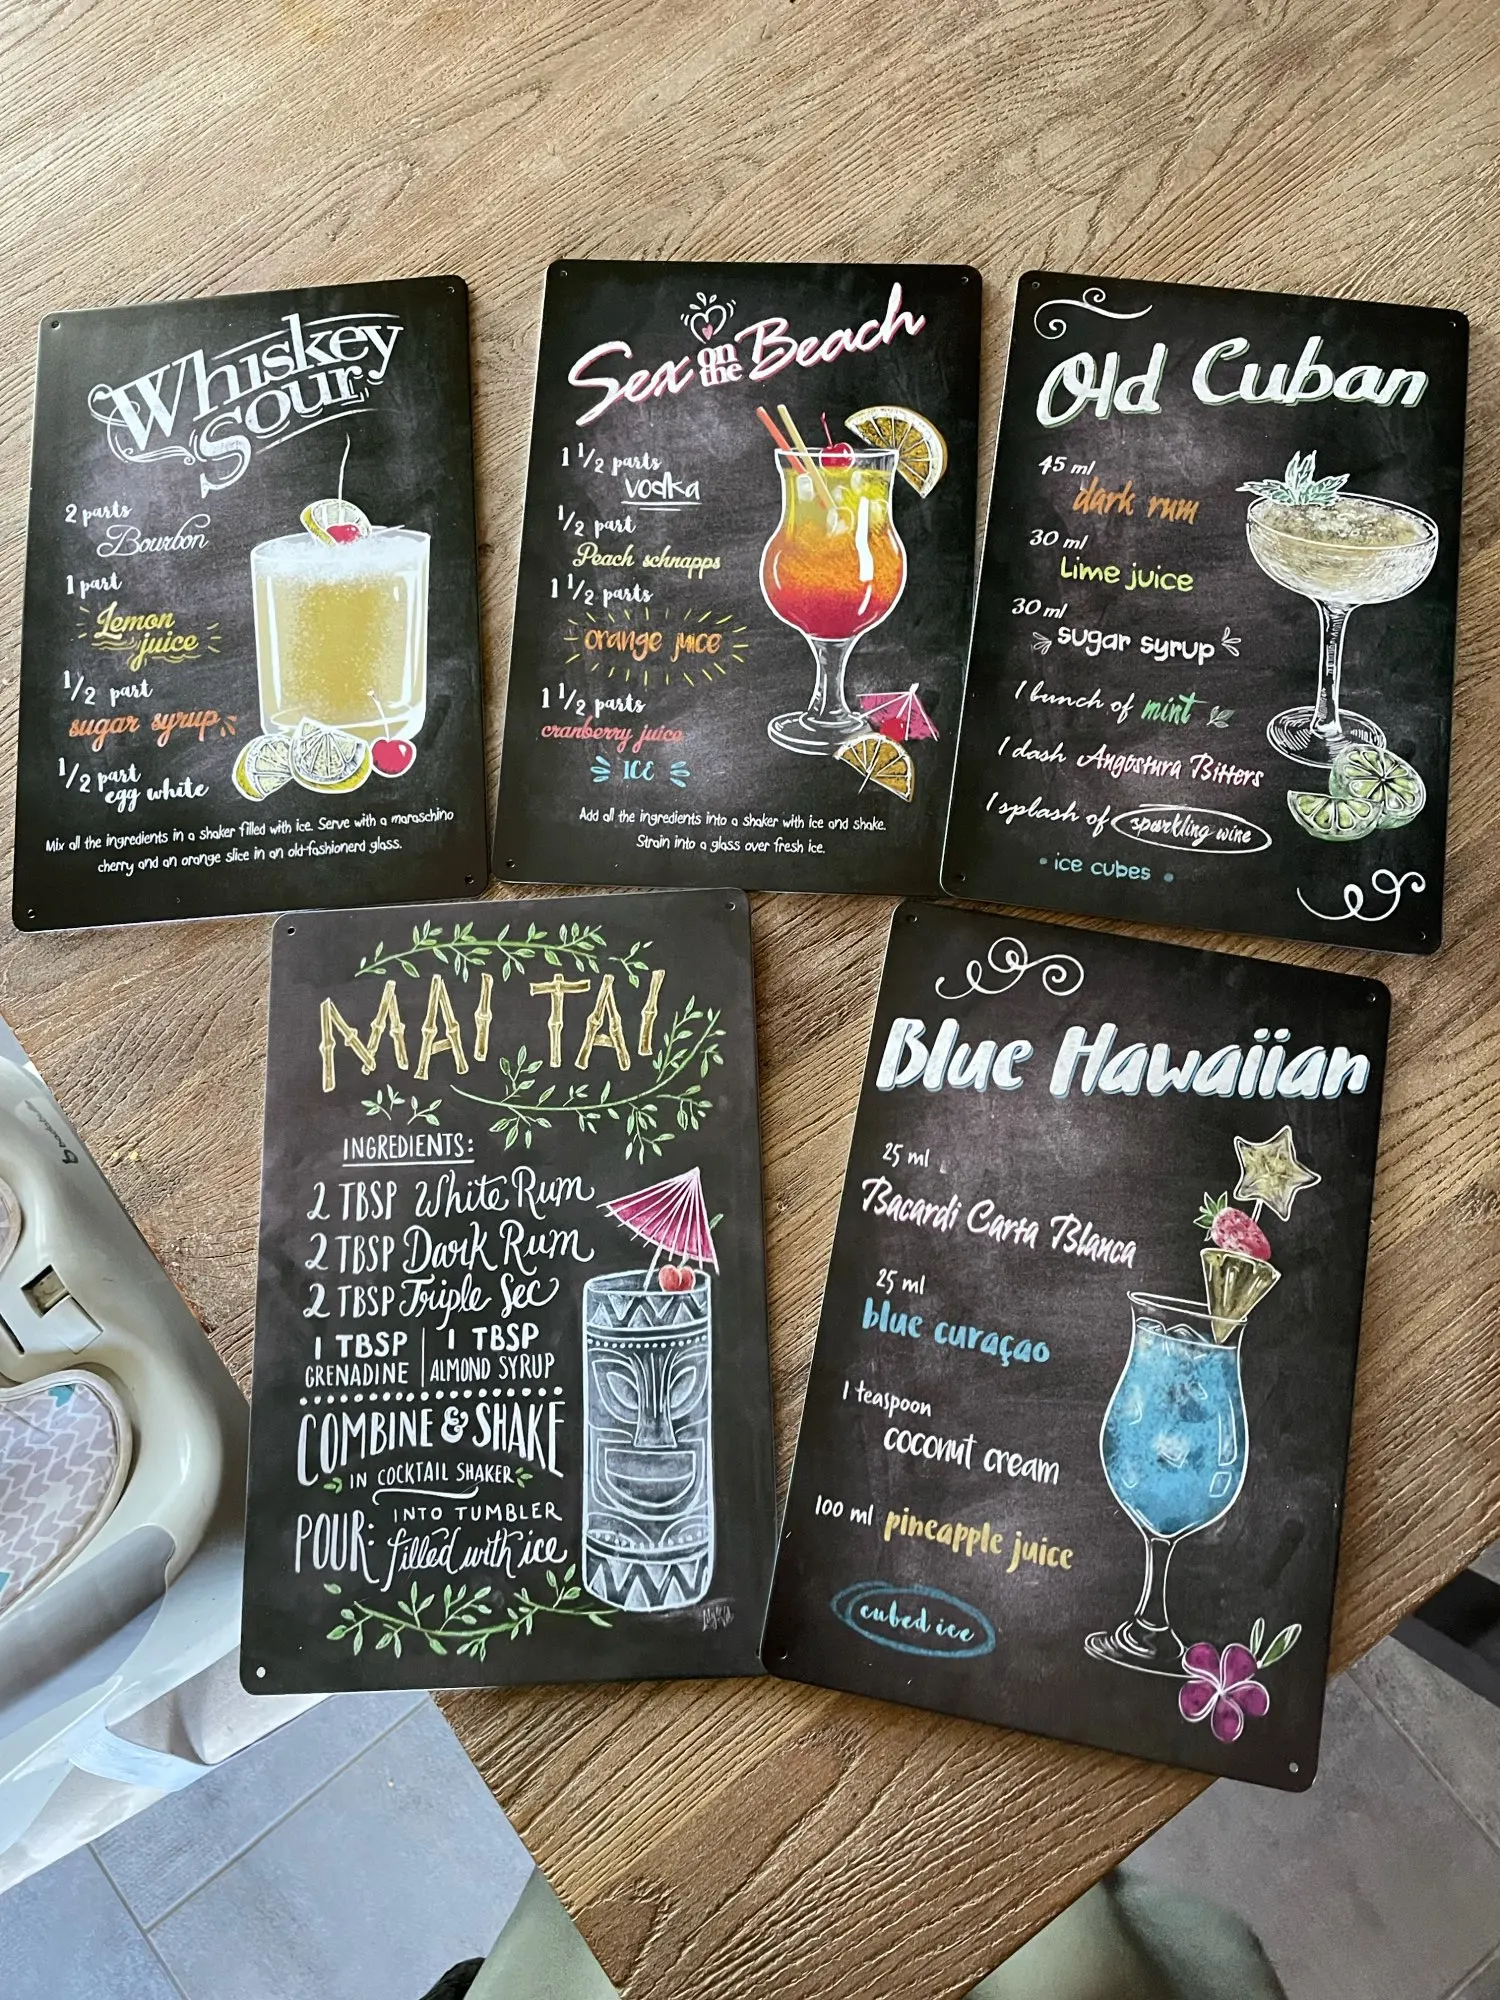 Whiskey
Sour
2 parts
Bourbon
1 part
Lemon
juice
1/2 part
sugar syrup
1/2 part
egg white
Mix all the ingredients in a shaker filled with ice. Serve with a maraschino
cherry and an orange slice in an old-fashionerd glass.
Sex on the Beach
1 1/2 parts
vodka
1/2 part
Peach schnapps
1 1/2 parts
orange juice
1 1/2 parts
cranberry juice
ICE
Add all the ingredients into a shaker with ice and shake.
Strain into a glass over fresh ice.
Old Cuban
45 ml
dark rum
30 ml
Lime juice
30 ml
sugar syrup
1 bunch of mint
1 dash Angostura Bitters
1 splash of sparkling wine
• ice cubes •
MAI TAI
INGREDIENTS:
2 TBSP White Rum
2 TBSP Dark Rum
2 TBSP Triple Sec
1 TBSP | 1 TBSP
GRENADINE | ALMOND SYRUP
COMBINE & SHAKE
IN COCKTAIL SHAKER
POUR: INTO TUMBLER
filled with ice
Blue Hawaiian
25 ml
Bacardi Carta Blanca
25 ml
blue curaçao
1 teaspoon
coconut cream
100 ml pineapple juice
cubed ice